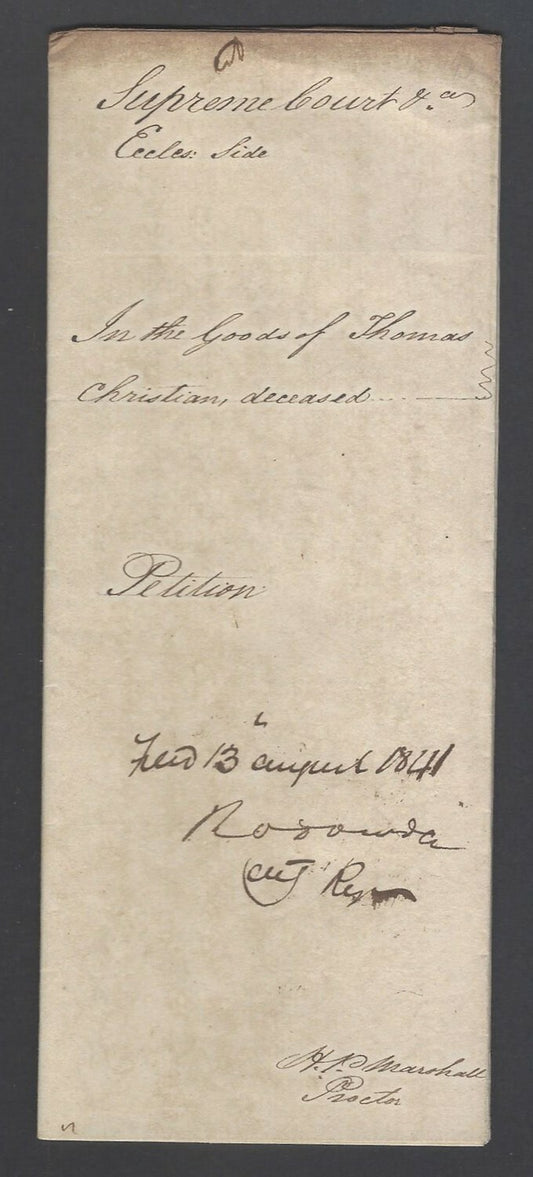 Supreme Court &ca
Eccles: Side
In the Goods of Thomas
Christian, deceased
Petition
Filed 13 august 1841
Regr
H. P. Marshall
Proctor